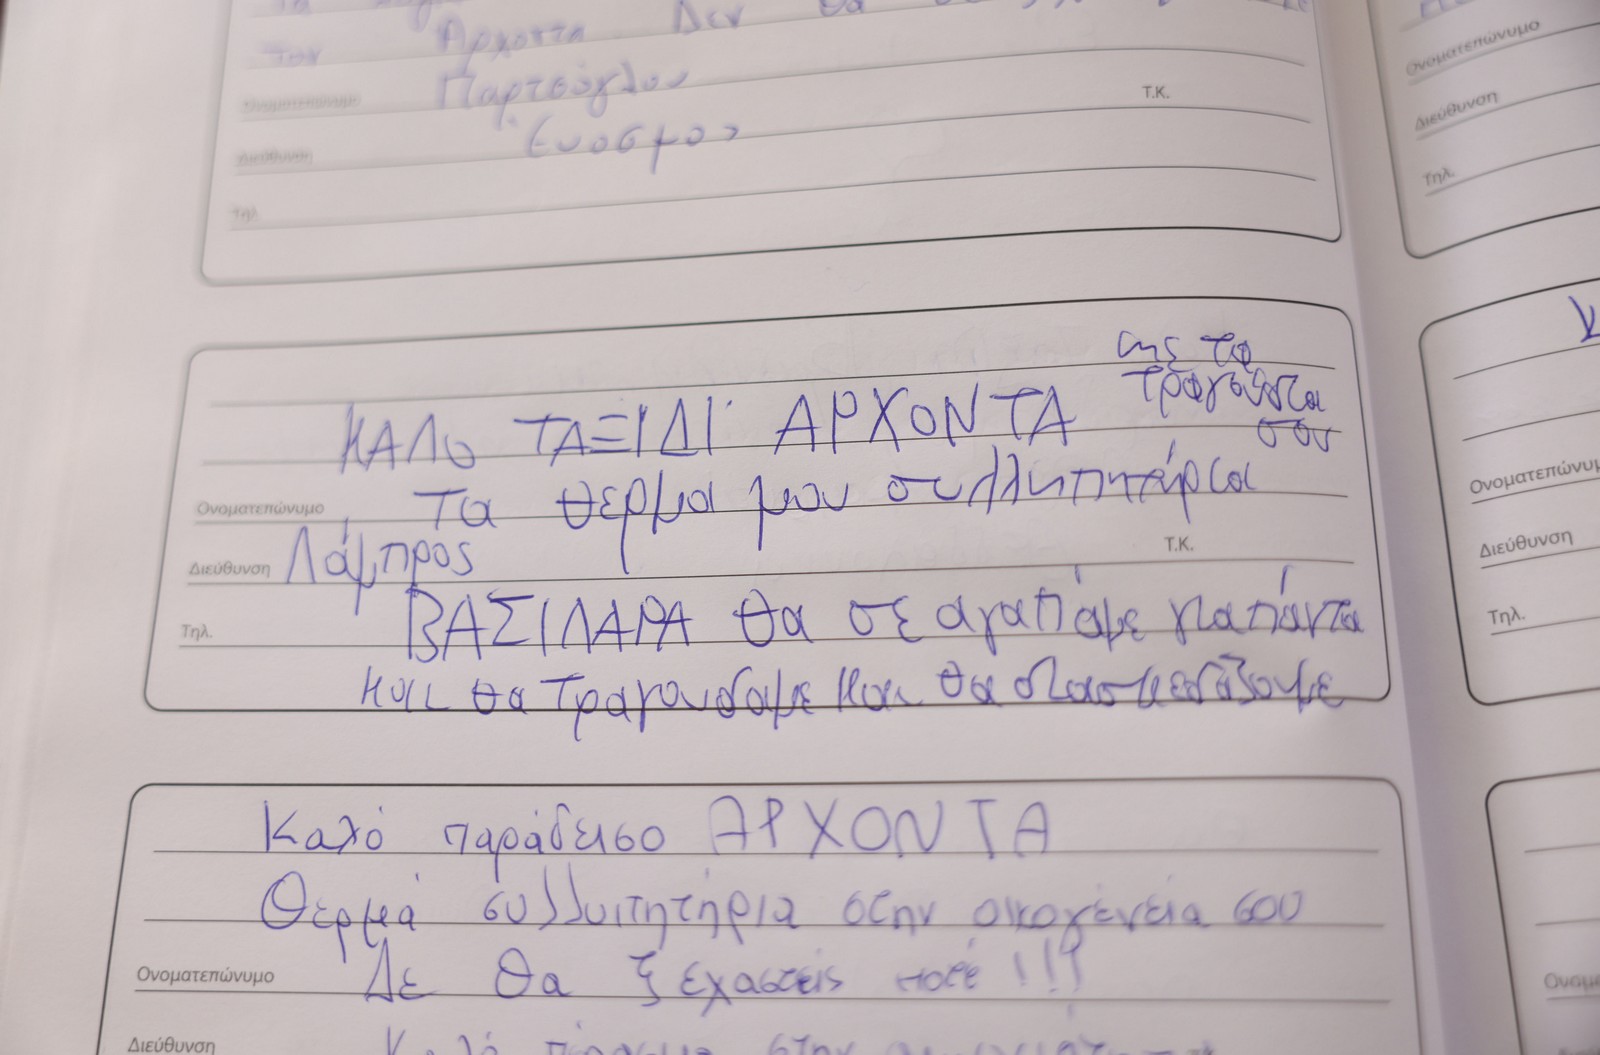 Τον Άρχοντα Δεν θα
Ονοματεπώνυμο Παρτσόγλου
Τ.Κ.
Διεύθυνση Εύοσμος
Τηλ.
ΚΑΛΟ ΤΑΞΙΔΙ ΑΡΧΟΝΤΑ
με τα
τραγούδια
σου
Ονοματεπώνυμο Τα θερμα μου συλληπητήρια
Διεύθυνση Λάμπρος Τ.Κ.
Τηλ. ΒΑΣΙΛΑΡΑ θα σε αγαπάμε για πάντα
και θα τραγουδαμε και θα διασκεδάζουμε
Καλό παράδεισο ΑΡΧΟΝΤΑ
Θερμά συλλυπητήρια στην οικογένεια σου
Ονοματεπώνυμο Δε θα ξεχαστείς ποτέ!!!
Διεύθυνση Καλό στην
Ονοματεπώνυμο
Διεύθυνση
Τηλ.
Ονοματεπώνυμο
Διεύθυνση
Τηλ.